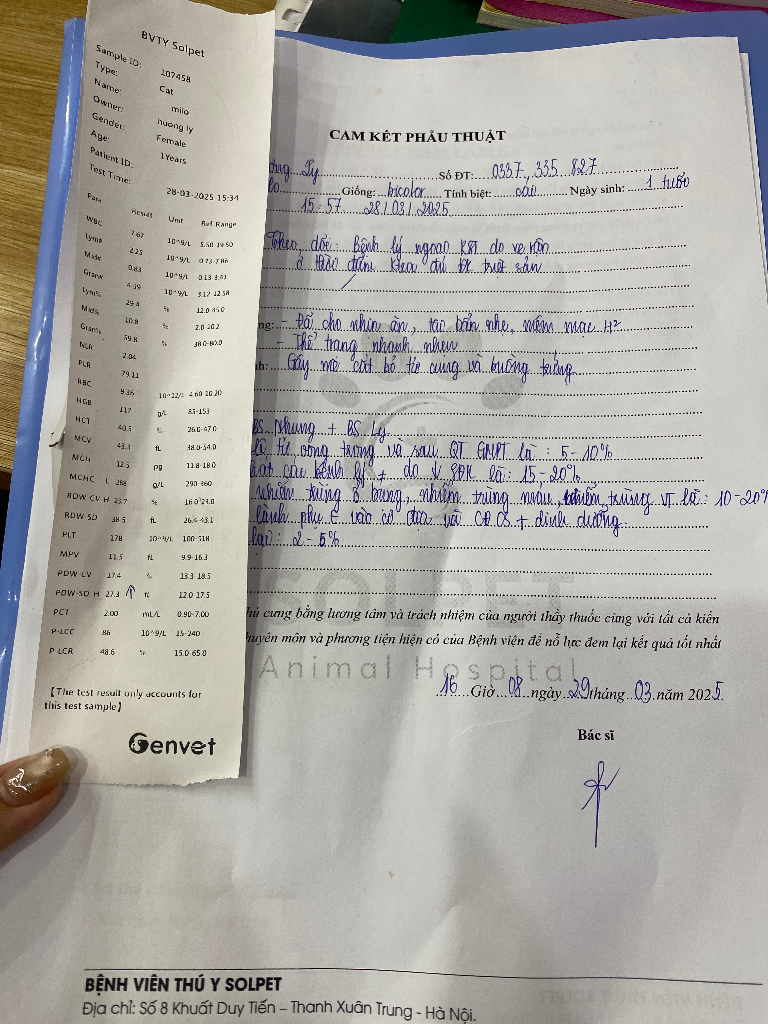 BVTY Solpet
Sample ID: 107458
Type: Cat
Name: milo
Owner: huong ly
Gender: Female
Age: 1Years
Patient ID:
Test Time: 28-03-2025 15:34
Para Result Unit Ref. Range
WBC 7.67 10^9/L 5.50-19.50
Lym# 2.25 10^9/L 0.73-7.86
Mid# 0.83 10^9/L 0.13-3.41
Gran# 4.59 10^9/L 3.12-12.58
Lym% 29.4 % 12.0-45.0
Mid% 10.8 % 2.0-20.2
Gran% 59.8 % 38.0-80.0
NLR 2.04
PLR 79.11
RBC 9.36 10^12/L 4.60-10.20
HGB 117 g/L 85-153
HCT 40.5 % 26.0-47.0
MCV 43.3 fL 38.0-54.0
MCH 12.5 pg 11.8-18.0
MCHC L 288 g/L 290-360
RDW-CV H 23.7 % 16.0-23.0
RDW-SD 38.5 fL 26.4-43.1
PLT 178 10^9/L 100-518
MPV 11.5 fL 9.9-16.3
PDW-CV 17.4 % 13.3-18.5
PDW-SD H 27.3 ↑ fL 12.0-17.5
PCT 2.00 mL/L 0.90-7.00
P-LCC 86 10^9/L 15-240
P-LCR 48.6 % 15.0-65.0
【The test result only accounts for
this test sample】
Genvet
CAM KẾT PHẪU THUẬT
Ly Số ĐT: 0337, 335 827
Giống: bicolor Tính biệt: cái Ngày sinh: 1 tuổi
15:57 28/03/2025
Theo dõi: Bệnh lý ngoại KST do ve rận
- Đã cho nhịn ăn, niêm mạc H²
- Thể trạng nhanh nhẹn
Gây mê cắt bỏ tử cung và buồng trứng
BS Nhung + BS Ly
là tử vong trong và sau QT GMPT là: 5-10%
là: 15-20%
nhiễm trùng ổ bụng, nhiễm trùng máu, nhiễm trùng VT là: 10-20%
lành phụ € vào cơ địa và CĐ CS + dinh dưỡng
2-5%
cưng bằng lương tâm và trách nhiệm của người thầy thuốc cùng với tất cả kiến
chuyên môn và phương tiện hiện có của Bệnh viện để nỗ lực đem lại kết quả tốt nhất
SOLPET
Animal Hospital
16 Giờ 08 ngày 29 tháng 03 năm 2025.
Bác sĩ
BỆNH VIỆN THÚ Y SOLPET
Địa chỉ: Số 8 Khuất Duy Tiến – Thanh Xuân Trung - Hà Nội.